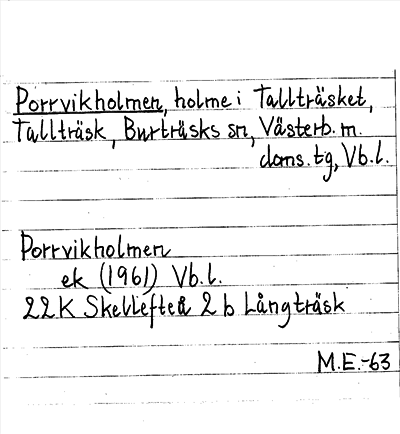 Porrvikholmen, holme i Tallträsket,
Tallträsk, Burträsks sn, Västerb. m.
doms. tg, Vb.l.
Porrvikholmen
ek (1961) Vb.l.
22K Skellefteå 2 b Långträsk
M.E.-63